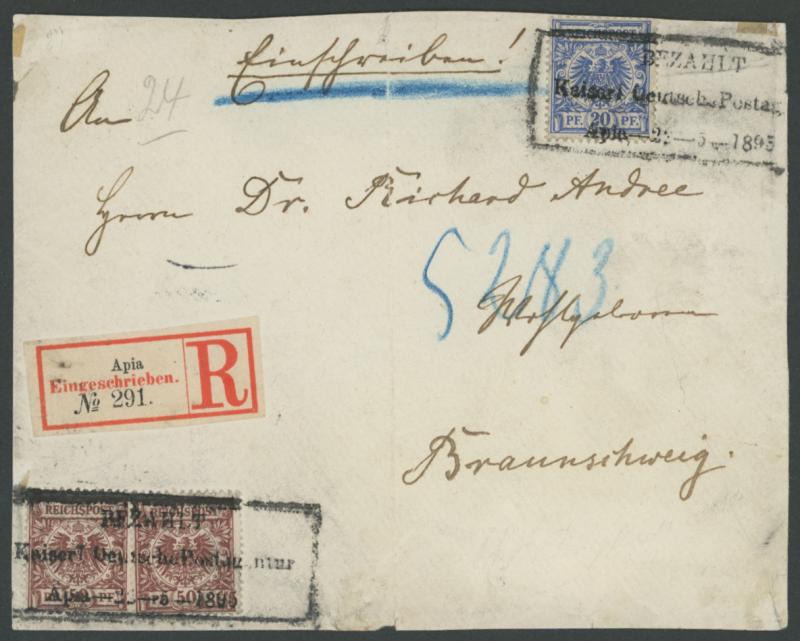 Einschreiben!
REICHSPOST
PF. 20 PF.
BEZAHLT
Kaiserl Deutsche Postag
Apia 5 1895
An
24
Herrn Dr. Richard Andree
5283
Wohlgeboren
Apia
Eingeschrieben.
№ 291.
R
Braunschweig.
REICHSPOST
BEZAHLT
Kaiserl Deutsche Postagentur
50
Apia 5 1895